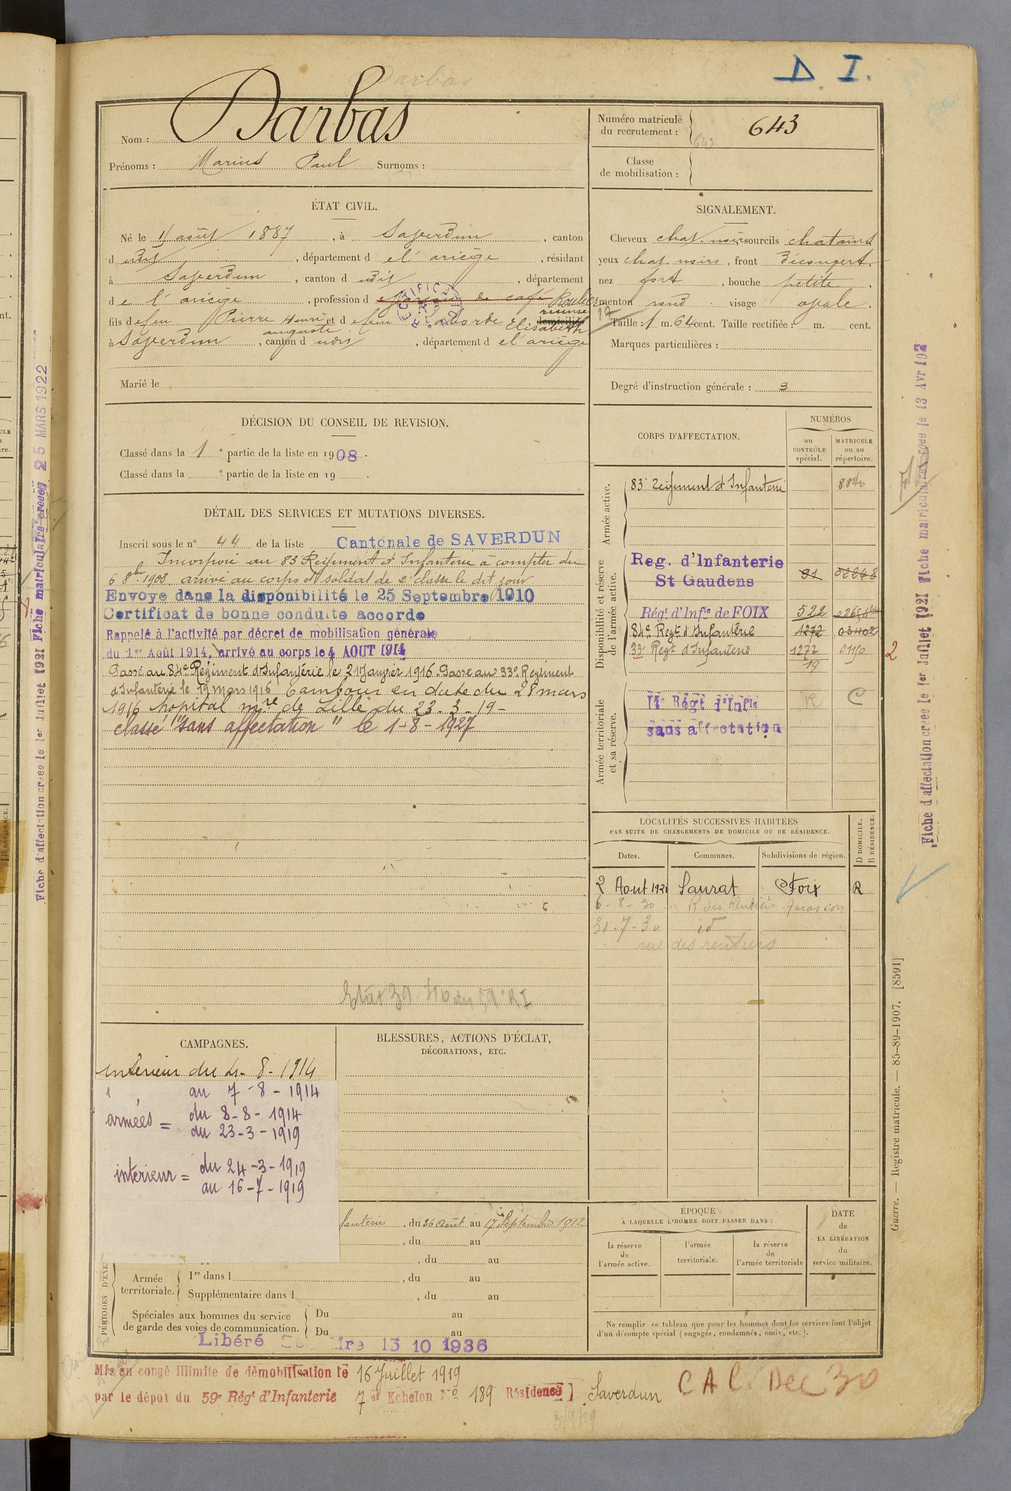 D. I.
Darbas
Nom : Darbas
Prénoms : Marius Paul Surnoms :
Numéro matricule du recrutement : 643
Classe de mobilisation :
ÉTAT CIVIL.
Né le 11 août 1887, à Saverdun, canton
d udit, département d e l'ariège, résidant
à Saverdun, canton d udit, département
d e l'ariège, profession d
fils d e feu Pierre Henri auguste et d e feu Laborde Elisabeth
à Saverdun, canton d udit, département d e l'ariège
Marié le
SIGNALEMENT.
Cheveux chat. noirs sourcils chatains
yeux chat. noirs, front découvert.
nez fort, bouche petite,
menton rond visage ovale
Taille : 1 m. 64 cent. Taille rectifiée : m. cent.
Marques particulières :
Degré d'instruction générale : 3
DÉCISION DU CONSEIL DE REVISION.
Classé dans la 1e partie de la liste en 1908.
Classé dans la e partie de la liste en 19 .
DÉTAIL DES SERVICES ET MUTATIONS DIVERSES.
Inscrit sous le n° 44 de la liste Cantonale de SAVERDUN
Incorporé au 83e Régiment d'Infanterie à compter du
6 8bre 1908. arrivé au corps et soldat de 2e classe le dit jour
Envoyé dans la disponibilité le 25 Septembre 1910
Certificat de bonne conduite accordé
Rappelé à l'activité par décret de mobilisation générale
du 1er Août 1914, arrivé au corps le 4 AOUT 1914
Passé au 84e Régiment d'Infanterie le 21 Janvier 1916 Passé au 33e Régiment
d'Infanterie le 19 mars 1916 Tambour en date du 28 mars
1916 hopital mre de Lille du 23-3-19-
classé "sans affectation" le 1-8-1927
CORPS D'AFFECTATION.
NUMÉROS
au CONTRÔLE spécial.
MATRICULE ou au répertoire.
Armée active.
83e régiment d'Infanterie 8840
Disponibilité et réserve de l'armée active.
Reg. d'Infanterie
St Gaudens
Rég.t d'Inf.ie de FOIX 522
84e Regt d'Infanterie 1272
33e Regt d'Infanterie 1272 0110
19
Armée territoriale et sa réserve.
14e Régt d'Infie R C
sans affectation
LOCALITÉS SUCCESSIVES HABITÉES
PAR SUITE DE CHANGEMENTS DE DOMICILE OU DE RÉSIDENCE.
Dates. Communes. Subdivisions de région. D DOMICILE. R RÉSIDENCE.
2 Aout 1920 Saurat Foix R
6-8-30 R des Rentiers Tarascon
31-7-30 id
rue des rentiers
CAMPAGNES.
intérieur du 4-8-1914
au 7-8-1914
armées = du 8-8-1914
du 23-3-1919
intérieur = du 24-3-1919
au 16-7-1919
BLESSURES, ACTIONS D'ÉCLAT,
DÉCORATIONS, ETC.
fanterie, du 26 Août au 17 Septembre 1912
, du au
, du au
Armée territoriale.
1re dans l , du au
Supplémentaire dans l , du au
Spéciales aux hommes du service de garde des voies de communication.
Du au
Du au
Libéré 13 10 1936
ÉPOQUE
À LAQUELLE L'HOMME DOIT PASSER DANS :
la réserve de l'armée active.
l'armée territoriale.
la réserve de l'armée territoriale
DATE de LA LIBÉRATION du service militaire.
Ne remplir ce tableau que pour les hommes dont les services font l'objet
d'un décompte spécial (engagés, condamnés, omis, etc.).
Mis en congé illimité de démobilisation le 16 Juillet 1919
par le dépot du 59e Rég.t d'Infanterie 7e Echelon No 189 Résidence Saverdun
CAC Dec 30
Guerre. — Registre matricule. — 85-89-1907. [8591]
Fiche d'affectation créée le 1er Juillet 1921 Fiche matriculaire créée le 13 Avr 192
Fiche d'affectation créée le 1er Juillet 1921 Fiche matriculaire créée 25 MARS 1922